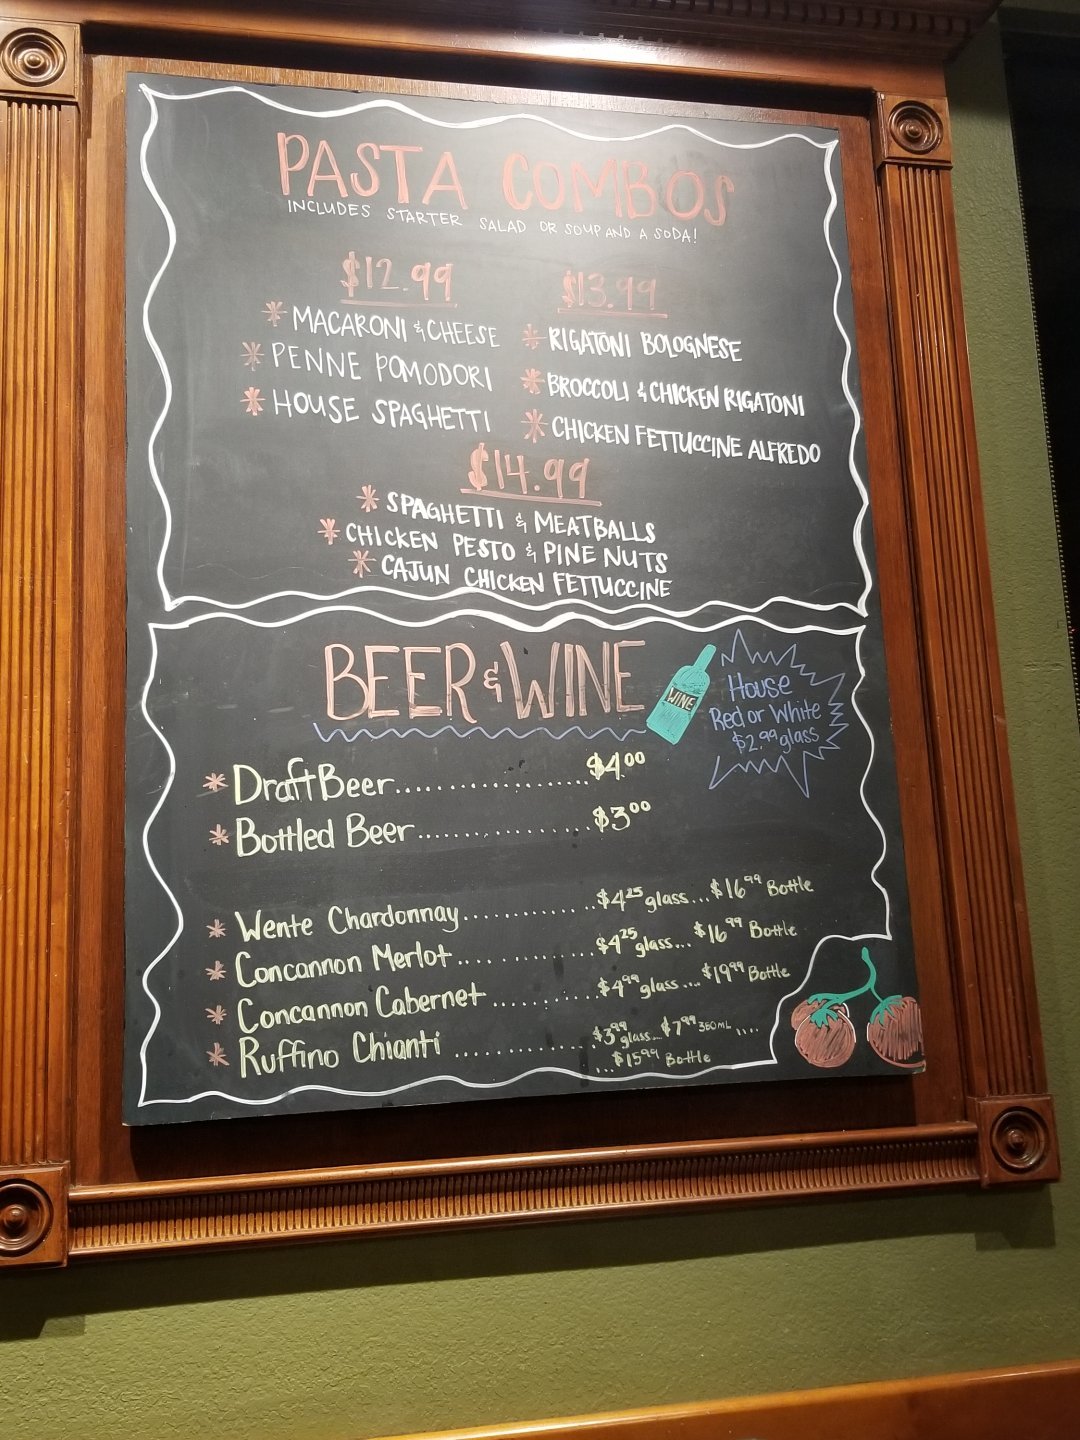 PASTA COMBOS
INCLUDES STARTER SALAD OR SOUP AND A SODA!
$12.99
* MACARONI & CHEESE
* PENNE POMODORI
* HOUSE SPAGHETTI
$13.99
* RIGATONI BOLOGNESE
* BROCCOLI & CHICKEN RIGATONI
* CHICKEN FETTUCCINE ALFREDO
$14.99
* SPAGHETTI & MEATBALLS
* CHICKEN PESTO & PINE NUTS
* CAJUN CHICKEN FETTUCCINE
BEER & WINE
WINE
House
Red or White
$2.99 glass
* Draft Beer.................$4.00
* Bottled Beer...............$3.00
* Wente Chardonnay.............$4.25 glass...$16.99 Bottle
* Concannon Merlot.............$4.25 glass...$16.99 Bottle
* Concannon Cabernet...........$4.99 glass....$19.99 Bottle
* Ruffino Chianti..............$3.99 glass...$7.99 380ML ....
...$15.99 Bottle